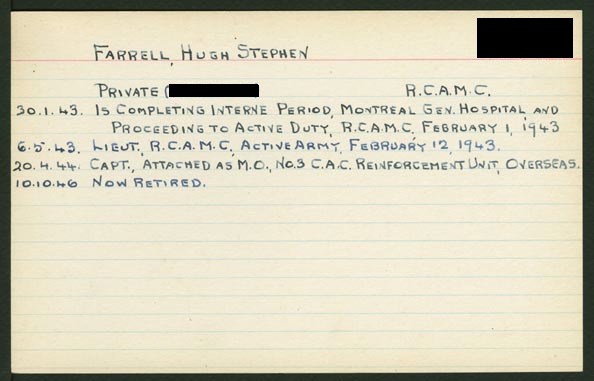 FARRELL, HUGH STEPHEN
PRIVATE ( R.C.A.M.C.
30.1.43. IS COMPLETING INTERNE PERIOD, MONTREAL GEN. HOSPITAL, AND
PROCEEDING TO ACTIVE DUTY, R.C.A.M.C, FEBRUARY 1, 1943
6.5.43. LIEUT. R.C.A.M.C, ACTIVE ARMY, FEBRUARY 12, 1943.
20.4.44. CAPT., ATTACHED AS M.O., NO.3 C.A.C. REINFORCEMENT UNIT, OVERSEAS.
10.10.46 NOW RETIRED.